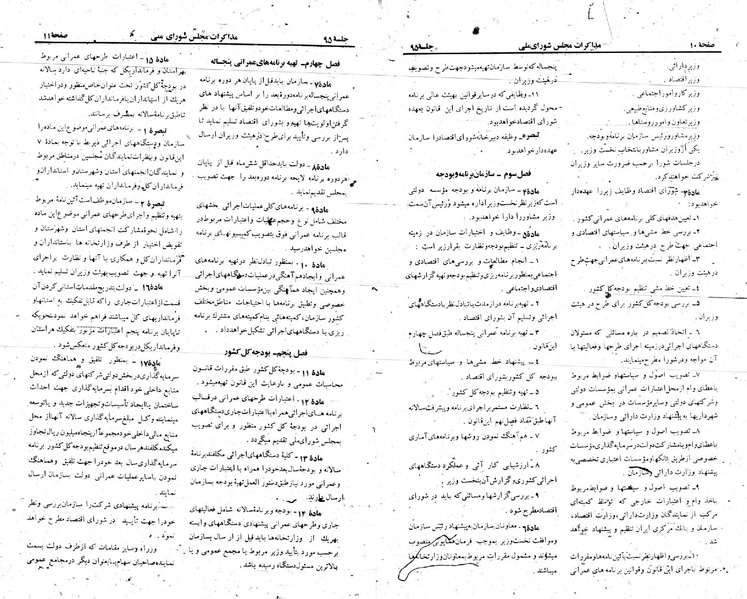 صفحهٔ ۱۰
مذاکرات مجلس شورای ملی
جلسهٔ ۹۵
وزیر دارائی.
وزیر اقتصاد.
وزیر کار و امور اجتماعی.
وزیر کشاورزی و منابع طبیعی.
وزیر تعاون و امور روستاها.
وزیر مشاور و رئیس سازمان برنامه و بودجه.
یکی از وزیران مشاور با انتخاب نخست وزیر.
در جلسات شورا برحسب ضرورت سایر وزیران
نیز شرکت خواهند کرد.
ماده ۳ـ شورای اقتصاد وظایف زیر را عهده‌دار
خواهد بود:
۱ـ تعیین هدفهای کلی برنامه‌های عمرانی کشور.
۲ـ بررسی خط مشی‌ها و سیاستهای اقتصادی و
اجتماعی جهت طرح در هیئت وزیران.
۳ـ اظهارنظر نسبت به برنامه‌های عمرانی جهت طرح
در هیئت وزیران.
۴ـ تعیین خط مشی تنظیم بودجه کل کشور
۵ـ بررسی بودجه کل کشور برای طرح در هیئت
وزیران.
۶ـ اتخاذ تصمیم در باره مسائلی که مسئولان
دستگاههای اجرائی در زمینه اجرای طرحها و فعالیتها با
آن مواجه و در شورا مطرح مینمایند.
۷ـ تصویب اصول و سیاستها و ضوابط مربوط
باعطای وام از محل اعتبارات عمرانی بمؤسسات دولتی
و شرکتهای دولتی و سایر مؤسسات در بخش عمومی و
شهرداریها به پیشنهاد وزارت دارائی و سازمان.
۸ـ تصویب اصول و سیاستها و ضوابط مربوط
باعطای وام یا مشارکت دولت در سرمایه‌گذاری مؤسسات
خصوصی از طریق بانکها و مؤسسات اعتباری تخصصی به
پیشنهاد وزارت دارائی و سازمان.
۹ـ تصویب اصول و سیاستها و ضوابط مربوط
باخذ وام و اعتبارات خارجی که توسط کمیته‌ای
مرکب از نمایندگان وزارت دارائی و وزارت اقتصاد،
سازمان و بانک مرکزی ایران تنظیم و پیشنهاد خواهد
شد.
۱۰ـ بررسی و اظهارنظر نسبت به آئین‌نامه‌ها و مقررات
مربوط باجرای این قانون و قوانین برنامه‌های عمرانی
پنجساله که توسط سازمان تهیه میشود جهت طرح و تصویب
در هیئت وزیران.
۱۱ـ وظایفی که در سایر قوانین بهیئت عالی برنامه
محول گردیده است از تاریخ اجرای این قانون بعهده
شورای اقتصاد خواهد بود.
تبصره ـ وظیفه دبیرخانه شورای اقتصاد را سازمان
عهده‌دار خواهد بود.
فصل سوم ـ سازمان برنامه و بودجه
ماده ۴ـ سازمان برنامه و بودجه مؤسسه دولتی
است که زیر نظر نخست وزیر اداره میشود و رئیس آن سمت
وزیر مشاور را دارا خواهد بود.
ماده ۵ـ وظایف و اختیارات سازمان در زمینه
برنامه‌ریزی ـ تنظیم بودجه و نظارت بقرار زیر است:
۱ـ انجام مطالعات و بررسی‌های اقتصادی و
اجتماعی بمنظور برنامه‌ریزی و تنظیم بودجه و تهیه گزارشهای
اقتصادی و اجتماعی.
۲ـ تهیه برنامه دراز مدت با تبادل نظر با دستگاههای
اجرائی و تسلیم آن بشورای اقتصاد.
۳ـ تهیه برنامه عمرانی پنجساله طبق فصل چهارم
این قانون.
۴ـ پیشنهاد خط مشی‌ها و سیاستهای مربوط
ببودجه کل کشور بشورای اقتصاد.
۵ـ تهیه و تنظیم بودجه کل کشور.
۶ـ نظارت مستمر بر اجرای برنامه و پیشرفت سالانه
آنها طبق مفاد فصل نهم این قانون.
۷ـ هم آهنگ نمودن روشها و برنامه‌های آماری
کشور.
۸ـ ارزشیابی کارآئی و عملکرد دستگاههای
اجرائی کشور و گزارش آن بنخست وزیر.
۹ـ بررسی گزارشها و مسائلی که باید در شورای
اقتصاد مطرح شود.
ماده ۶ـ معاونان سازمان به پیشنهاد رئیس سازمان
و موافقت نخست وزیر بموجب فرمان همایونی منصوب
میشوند و مشمول مقررات مربوط بمعاونان وزارتخانه‌ها
میباشند.
جلسهٔ ۹۵
مذاکرات مجلس شورای ملی
صفحهٔ ۱۱
فصل چهارم ـ تهیه برنامه‌های عمرانی پنجساله
ماده ۷ـ سازمان باید قبل از پایان هر دوره برنامه
عمرانی پنجساله برنامه دوره بعد را بر اساس پیشنهادهای
دستگاههای اجرائی و مطالعات خود و تلفیق آنها با در نظر
گرفتن اولویتها تهیه و بشورای اقتصاد تسلیم نماید تا
پس از بررسی و تأیید برای طرح در هیئت وزیران ارسال
دارد.
ماده ۸ـ دولت باید حداقل شش ماه قبل از پایان
هر دوره برنامه لایحه برنامه دوره بعد را جهت تصویب
بمجلس تقدیم نماید.
ماده ۹ـ برنامه‌های کلی عملیات اجرائی بخشهای
مختلف شامل نوع و حجم عملیات و اعتبارات مربوط در
قالب برنامه عمرانی فوق بتصویب کمیسیونهای برنامه
مجلسین خواهد رسید.
ماده ۱۰ـ بمنظور تبادل نظر در تهیه برنامه‌های
عمرانی و ایجاد هم‌آهنگی در عملیات دستگاههای اجرائی
و همچنین ایجاد هم‌آهنگی بین مؤسسات عمومی و بخش
خصوصی و تطبیق برنامه‌ها با احتیاجات مناطق مختلف
کشور سازمان، کمیته‌هائی بنام کمیته‌های مشترک برنامه
ریزی با دستگاههای اجرائی تشکیل خواهد داد.
فصل پنجم ـ بودجه کل کشور
ماده ۱۱ـ بودجه کل کشور طبق مقررات قانون
محاسبات عمومی و با رعایت این قانون تهیه میشود.
ماده ۱۲ـ اعتبارات طرحهای عمرانی در قالب
برنامه‌های اجرائی همراه با اعتبارات جاری دستگاههای اجرائی
در بودجهٔ کل کشور منظور و برای تصویب
بمجلس شورای ملی تقدیم میگردد.
ماده ۱۳ـ کلیهٔ دستگاههای اجرائی مکلفند برنامهٔ
سالانه و بودجهٔ سال بعد خود را همراه با اعتبارات جاری
و عمرانی مورد نیاز طبق دستورالعمل تهیهٔ بودجه به سازمان
ارسال دارند.
ماده ۱۴ـ بودجه و برنامهٔ سالانه شامل فعالیتهای
جاری و طرحهای عمرانی پیشنهادی دستگاههای وابسته
بهریک از وزارتخانه‌ها باید قبل از ارسال بسازمان
برحسب مورد بتأیید وزیر مربوط یا مجمع عمومی و یا
بالاترین مسئول دستگاه رسیده باشد.
ماده ۱۵ـ اعتبارات طرحهای عمرانی مربوط
بهر استان و فرمانداری کل که جنبهٔ ناحیه‌ای دارد سالانه
در بودجهٔ کل کشور تحت عنوان خاص منظور و در اختیار
هریک از استانداران یا فرمانداران کل گذاشته خواهد شد
تا طبق برنامهٔ سالانه بمصرف برسانند.
تبصره ۱ـ برنامه‌های عمرانی موضوع این ماده را
سازمان و دستگاههای اجرائی ذیربط با توجه بمادهٔ ۷
این قانون و نظرات نمایندگان مجلسین در مناطق مربوط
و نمایندگان انجمنهای استان و شهرستان و استانداران و
فرمانداران کل تهیه مینماید.
تبصره ۲ـ سازمان موظف است آئین‌نامهٔ مربوط
بتهیه و تنظیم و اجرای طرحهای عمرانی موضوع این ماده
را شامل نحوهٔ مشارکت انجمنهای استان و شهرستان و
تفویض اختیار از طرف وزارتخانه‌ها باستانداران و
فرمانداران کل و همکاری با آنها و نظارت براجرای
آنرا تهیه و جهت تصویب بهیئت وزیران تسلیم نماید.
ماده ۱۶ـ دولت بتدریج مقدمات استانی کردن آن
قسمت از اعتبارات جاری را که قابل تفکیک به استانها و
فرمانداریهای کل میباشد فراهم خواهد نمود بنحویکه
تا پایان برنامه پنجم اعتبارات مزبور بتفکیک هر استان و
فرمانداری کل در بودجه کل کشور منعکس شود.
ماده ۱۷ـ بمنظور تلفیق و هماهنگ نمودن
سرمایه‌گذاری در بخش دولتی شرکتهای دولتی که از محل
منابع داخلی خود اقدام بسرمایه‌گذاری جهت احداث
ساختمان یا ایجاد تأسیسات و تجهیزات جدید و یا توسعه
مینمایند و کل مبلغ سرمایه‌گذاری سالانه آنها از محل
منابع مالی داخلی خود مجموعاً از پنجاه میلیون ریال تجاوز
میکند مکلفند هر سال در موقع تنظیم بودجه کل کشور برنامه
سرمایه‌گذاری سال بعد خود را جهت تلفیق و هماهنگ
نمودن با سایر عملیات عمرانی دولت بسازمان ارسال
نمایند.
برنامه پیشنهادی شرکت را سازمان بررسی و نظر
خود را جهت تأیید در شورای اقتصاد مطرح خواهد
نمود.
وزراء و سایر مقاماتی که از طرف دولت بسمت
نماینده صاحبان سهام یا بعنوان دیگر در مجامع عمومی